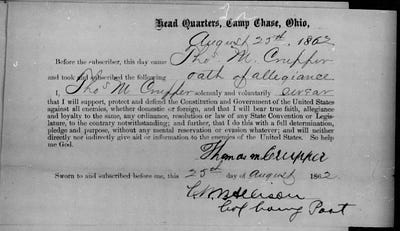 Head Quarters, Camp Chase, Ohio,
August 25th, 1862
Before the subscriber, this day came Thos M. Crupper
and took and subscribed the following oath of allegiance
I, Thos M Crupper solemnly and voluntarily swear
that I will support, protect and defend the Constitution and Government of the United States
against all enemies, whether domestic or foreign, and that I will bear true faith, allegiance
and loyalty to the same, any ordinance, resolution or law of any State Convention or Legis-
lature, to the contrary notwithstanding; and further, that I do this with a full determination,
pledge and purpose, without any mental reservation or evasion whatever; and will neither
directly nor indirectly give aid or information to the enemies of the United States. So help
me God.
Thomas m Crupper
Sworn to and subscribed before me, this 25th day of August 1862.
C.W.B. Allison
Col Comg Post